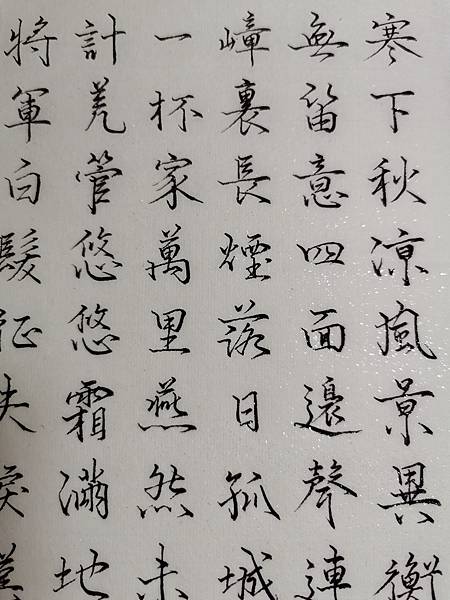 寒下秋涼風景異衡
無留意四面邊聲連
嶂裏長煙落日孤城
一杯家萬里燕然未
計羌管悠悠霜滿地
將軍白髮征夫淚